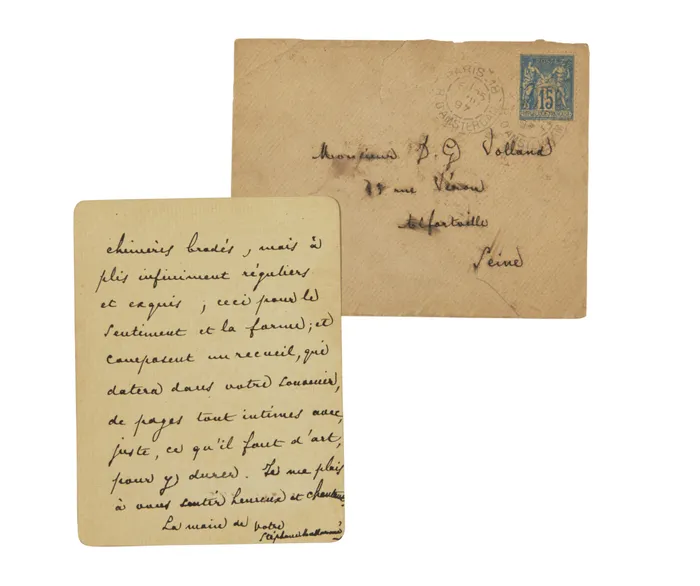 PARIS-18
R. D'AMSTERDAM
97
15
Monsieur D. G Volland
rue Véron
Alfortville
Seine
chimeris brodés, mais à
plis infiniment réguliers
et exquis ; ceci pour le
sentiment et la forme ; et
composent un recueil, qui
datera dans votre souvenir,
de pages tout intimes avec,
juste, ce qu'il faut d'art,
pour y durer. Je me plais
à vous sentir heureux et chanteur
La main de votre
Stéphane Mallarmé